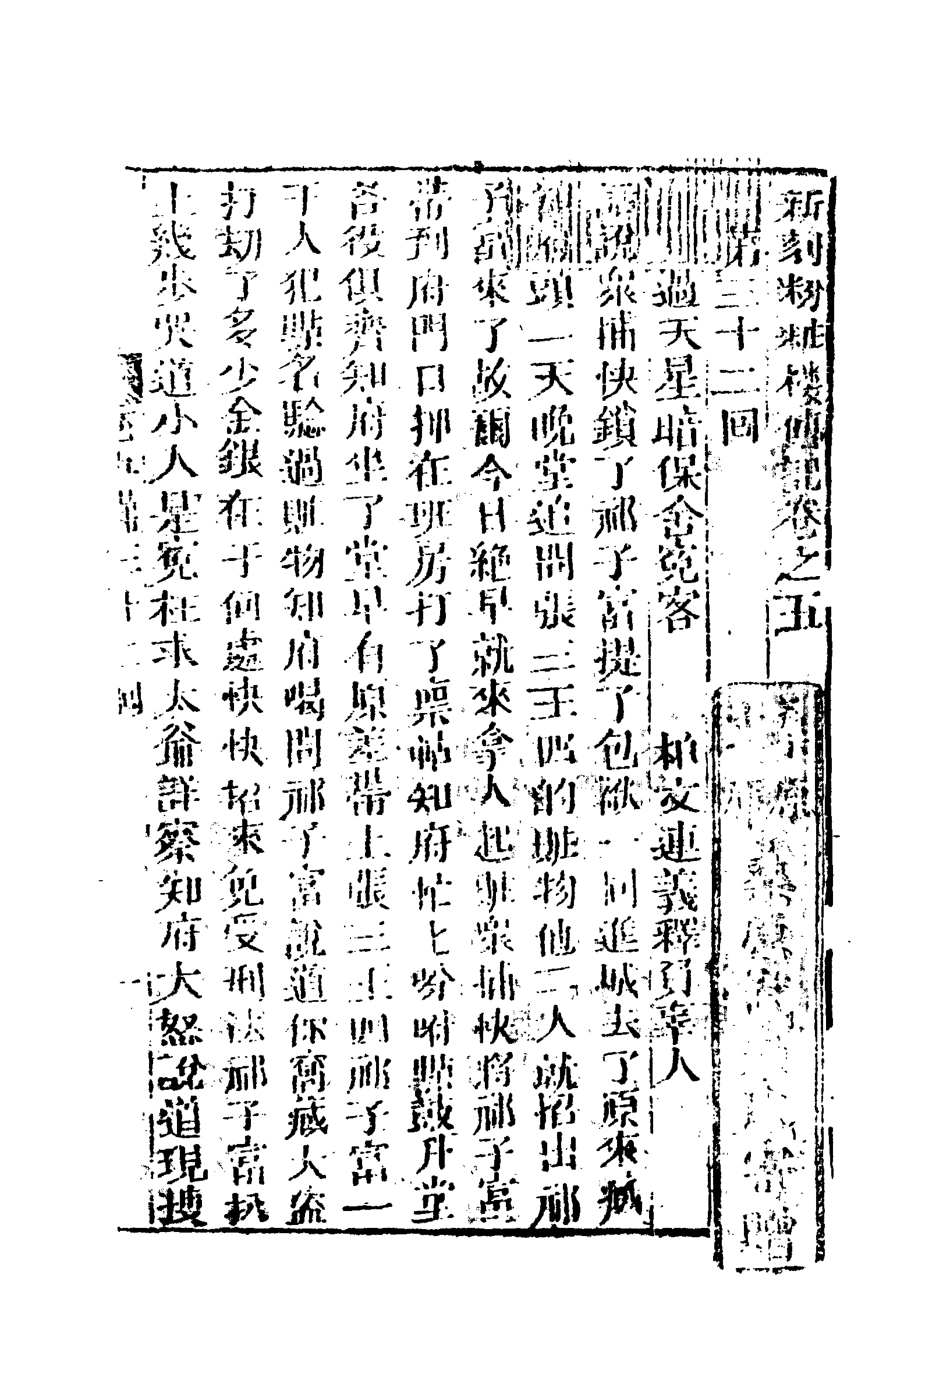 新刻粉粧樓傳記卷之五
第三十二回
過天星暗保含冤客　柏文連義釋負辜人
話說眾捕快鎖了祁子富提了包袱一同進城去了原來臧
頭一天晚堂追問張三王四的賍物他二人就招出祁
子富來了故爾今日絕早就來拿人起賍眾捕快將祁子富
帶到府門口押在班房打了稟帖知府忙忙吩咐點鼓升堂
各役俱齊知府坐了堂早有原差帶上張三王四祁子富一
干人犯點名驗過賍物知府喝問祁子富說道你窩藏大盜
打劫了多少金銀在于何處快快招來免受刑法祁子富扒
上幾步哭道小人是冤枉求太爺詳察知府大怒說道現搜
卷五 第三十二回